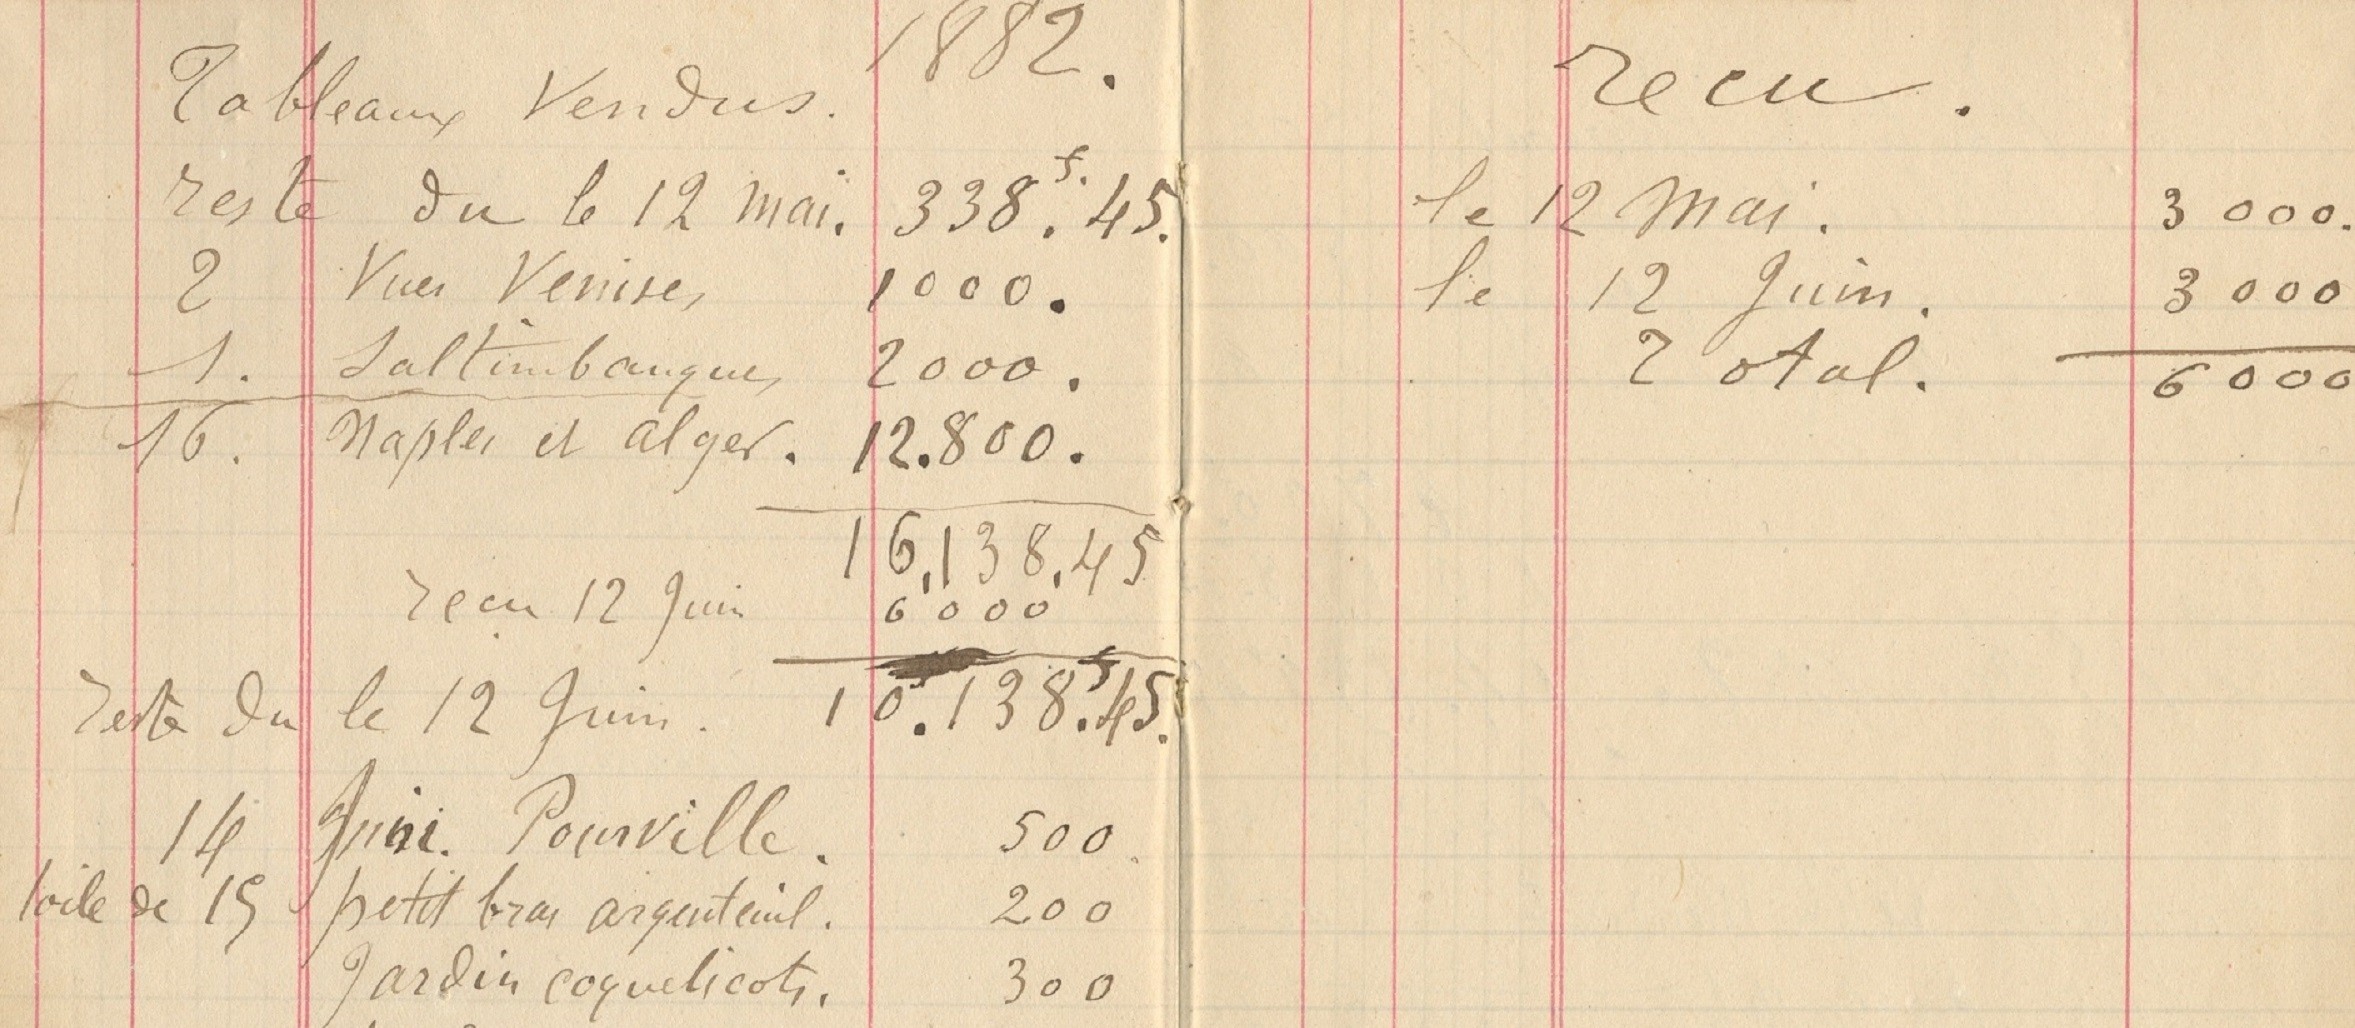 1882.
Tableaux Vendus.
reste du le 12 mai. 338.f. 45.
2 Vues Venises 1000.
1. Saltimbanques 2000.
16. Naples et alger. 12.800.
16.138.45
reçu 12 Juin 6000
reste du le 12 Juin. 10.138.f 45.
14 Juin. Pourville. 500.
toile de 15 petit bras argenteuil. 200
Jardin coquelicots. 300
recu.
le 12 Mai. 3 000.
le 12 Juin. 3 000
Total. 6000